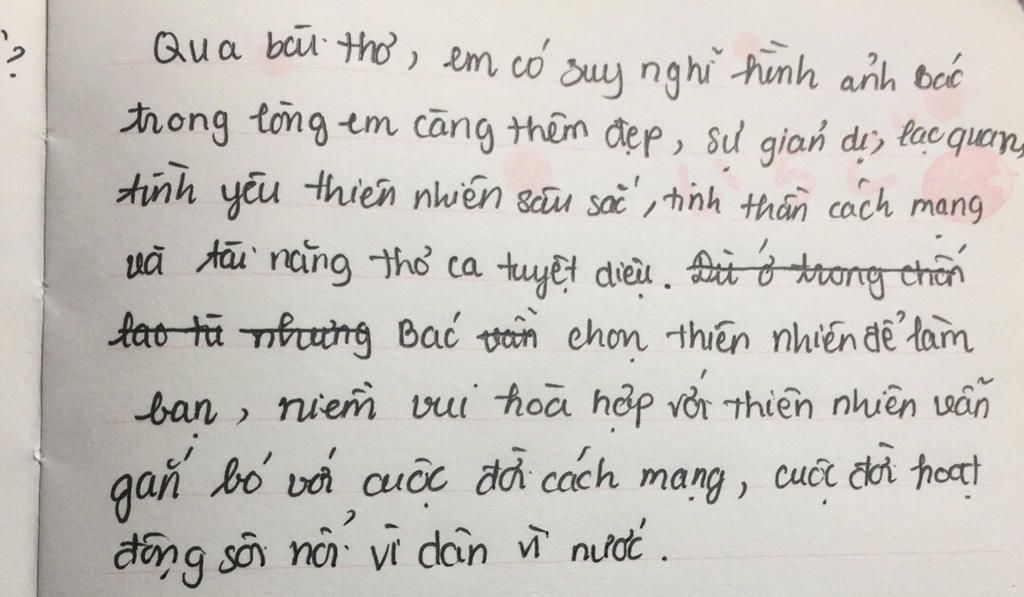 ?
Qua bài thơ, em có suy nghĩ hình ảnh Bác
trong lòng em càng thêm đẹp, sự giản dị, lạc quan,
tình yêu thiên nhiên sâu sắc, tinh thần cách mạng
và tài năng thơ ca tuyệt diệu. Dù ở trong chốn
lao tù nhưng Bác vẫn chọn thiên nhiên để làm
bạn, niềm vui hoà hợp với thiên nhiên vẫn
gắn bó với cuộc đời cách mạng, cuộc đời hoạt
động sôi nổi vì dân vì nước.